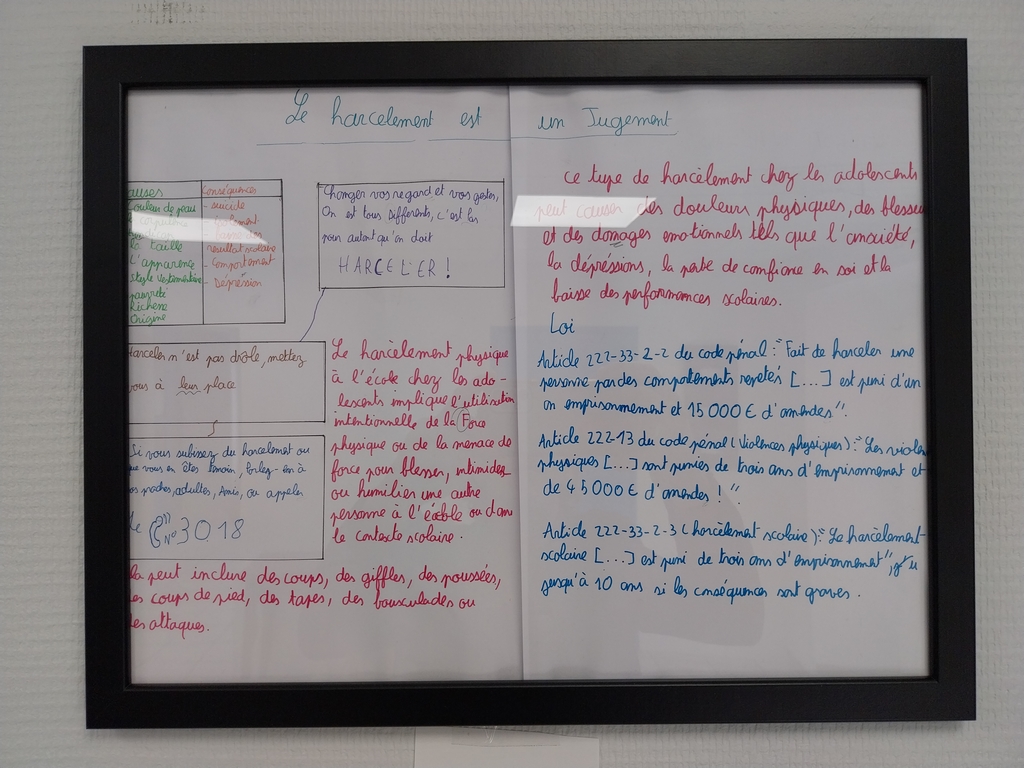 Le harcelement est un Jugement
auses
Couleur de peau
la taille
L'apparence
style vestimentaire
pauvreté
Richesse
Origine
Conséquences
- suicide
resultat scolaire
- comportement
- Dépression
Changer vos regard et vos gestes,
On est tous differents, c'est pas
pour autant qu'on doit
HARCELER !
Harceler n'est pas drole, mettez
vous à leur place
Si vous subissez du harcelement ou
que vous en êtes témoin, parlez-en à
vos proches, adultes, Amis, ou appeler
le N° 3018
Le harcèlement physique
à l'école chez les ado-
lescents implique l'utilisation
intentionnelle de la Force
physique ou de la menace de
force pour blesser, intimider
ou humilier une autre
personne à l'école ou dans
le contexte scolaire.
la peut inclure des coups, des giffles, des poussées,
es coups de pied, des tapes, des bousculades ou
es attaques.
ce type de harcèlement chez les adolescents
peut causer des douleurs physiques, des blessu
et des domages emotionnels tels que l'anxiété,
la dépréssions, la perte de confiance en soi et la
baisse des performances scolaires.
Loi
Article 222-33-2-2 du code pénal : "Fait de harceler une
personne par des comportements repetés [...] est puni d'un
an emprisonnement et 15 000 € d'amendes".
Article 222-13 du code pénal (Violences physiques) : "Les violen
physiques [...] sont punies de trois ans d'emprisonnement et
de 45 000 € d'amendes ! ".
Article 222-33-2-3 (harcèlement scolaire) : "Le harcèlement-
scolaire [...] est puni de trois ans d'emprisonnement",
jusqu'à 10 ans si les conséquences sont graves.